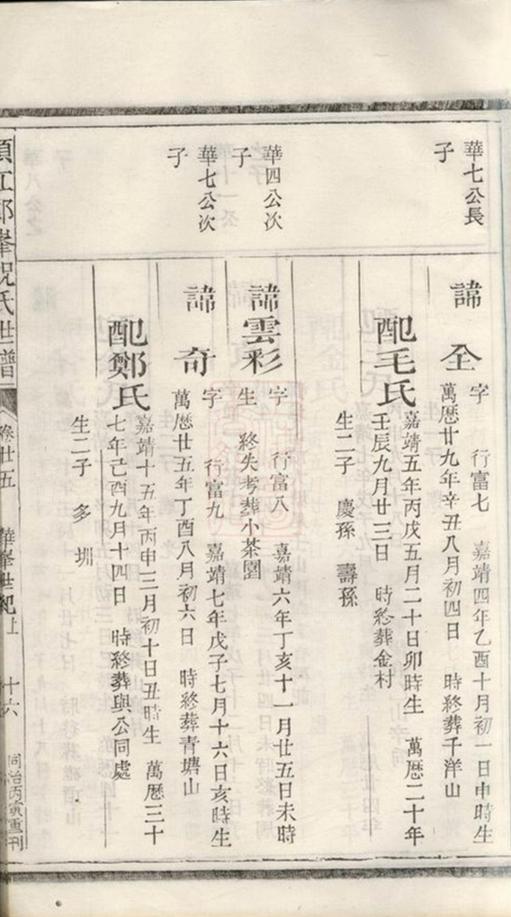 華七公長
子
諱 全
字 行富七 嘉靖四年乙酉十月初一日申時生
萬曆廿九年辛丑八月初四日 時終葬千洋山
配毛氏
嘉靖五年丙戌五月二十日卯時生 萬曆二十年
壬辰九月廿三日 時終葬金村
生二子 慶孫 壽孫
華四公次
子
諱雲彩
字 行富八 嘉靖六年丁亥十一月廿五日未時
生 終失考葬小茶園
華七公次
子
諱 奇
字 行富九 嘉靖七年戊子七月十六日亥時生
萬曆廿五年丁酉八月初六日 時終葬青塘山
配鄭氏
嘉靖十五年丙申三月初十日丑時生 萬曆三十
七年己酉九月十四日 時終葬與公同處
生二子 多 圳
須江郎峯祝氏世譜
卷廿五 華峯世紀上 十六 同治丙寅重刊